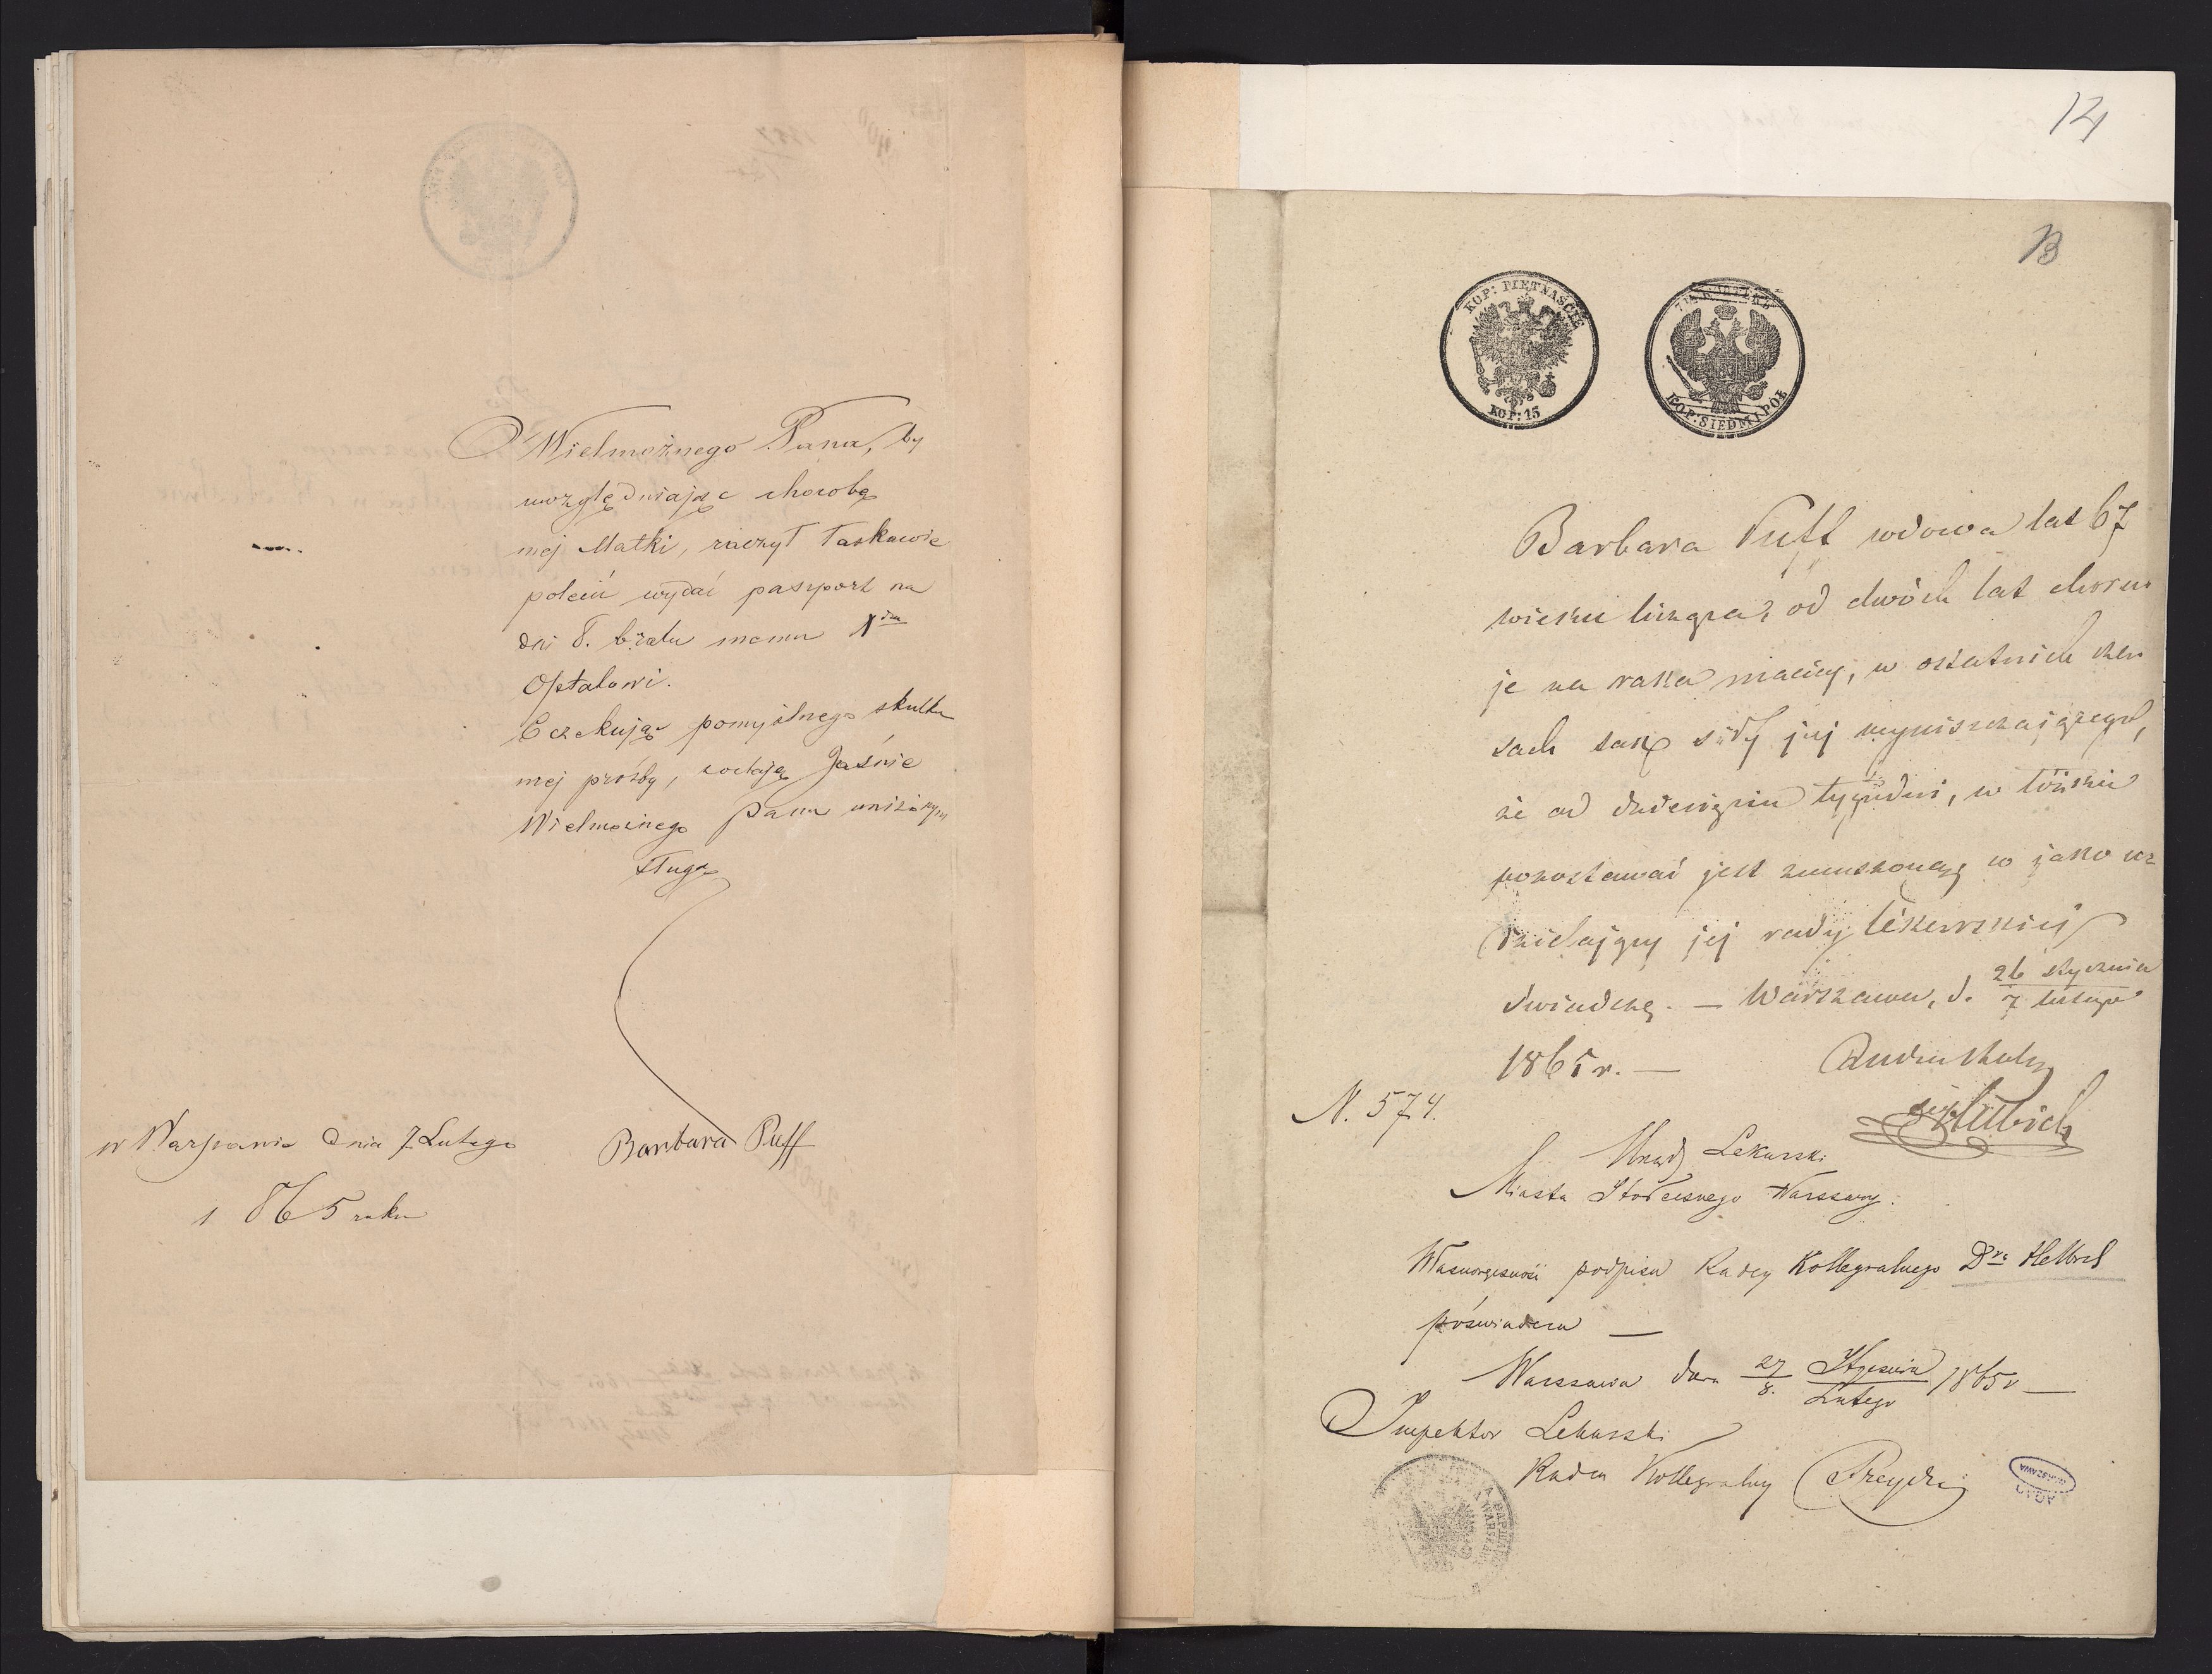 Wielmożnego Pana, by
uwzględniając chorobę
mej Matki, raczył łaskawie
polecić wydać paszport na
dni 8. bratu memu
Oczekując pomyślnego skutku
mej prośby, zostaję Jaśnie
Wielmożnego Pana uniżonym
sługą
w Warszawie dnia 7 Lutego
1865 roku
Barbara Puff
14
13
KOP: PIĘTNAŚCIE
KOP: 15
KOP: SIEDM I POŁ
Barbara Puff wdowa lat 67
wieku licząca, od dwóch lat choru
je na raka macicy, w ostatnich cza
sach tak siły jej wyniszczającego,
że od dziewięciu tygodni, w łóżku
pozostawać jest zmuszoną, co jako u
dzielający jej rady lekarskiej
świadczę. — Warszawa, d. 26 stycznia
7 lutego
1865 r. —
N. 574.
Urząd Lekarski
Miasta Stołecznego Warszawy.
Własnoręczność podpisu Radcy Kollegialnego Dra Helbich
poświadcza —
Warszawa dnia 27/8. Stycznia/Lutego 1865 r —
Inspektor Lekarski
Radca Kollegialny